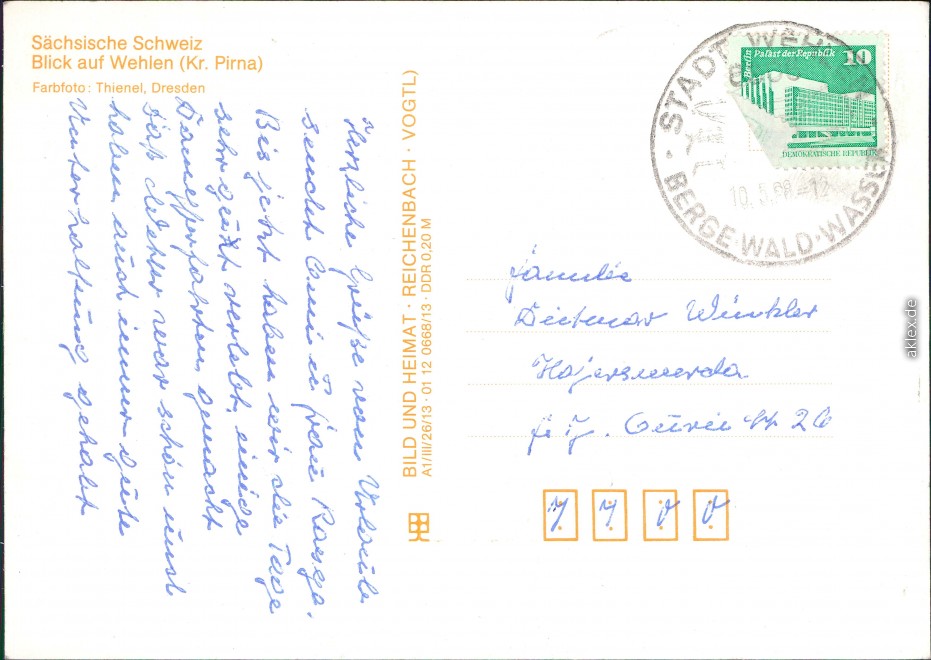 Sächsische Schweiz
Blick auf Wehlen (Kr. Pirna)
Farbfoto: Thienel, Dresden
Herzliche Grüße vom Urlaub
sendet
Bis jetzt haben wir die Tage
sehr gut verlebt, einige
Dampferfahrten gemacht
Das Wetter war schön und
haben auch immer gute
Unterhaltung gehabt
BILD UND HEIMAT · REICHENBACH · VOGTL)
A1/III/26/13 · 01 12 0668/13 · DDR 0,20 M
STADT WEHLEN
BERGE·WALD·WASSER
10.5.88-12
Berlin Palast der Republik 10
DEMOKRATISCHE REPUBLIK
Familie
Dietmar Winkler
Hojerswerda
26
7 7 0 0
aklex.de